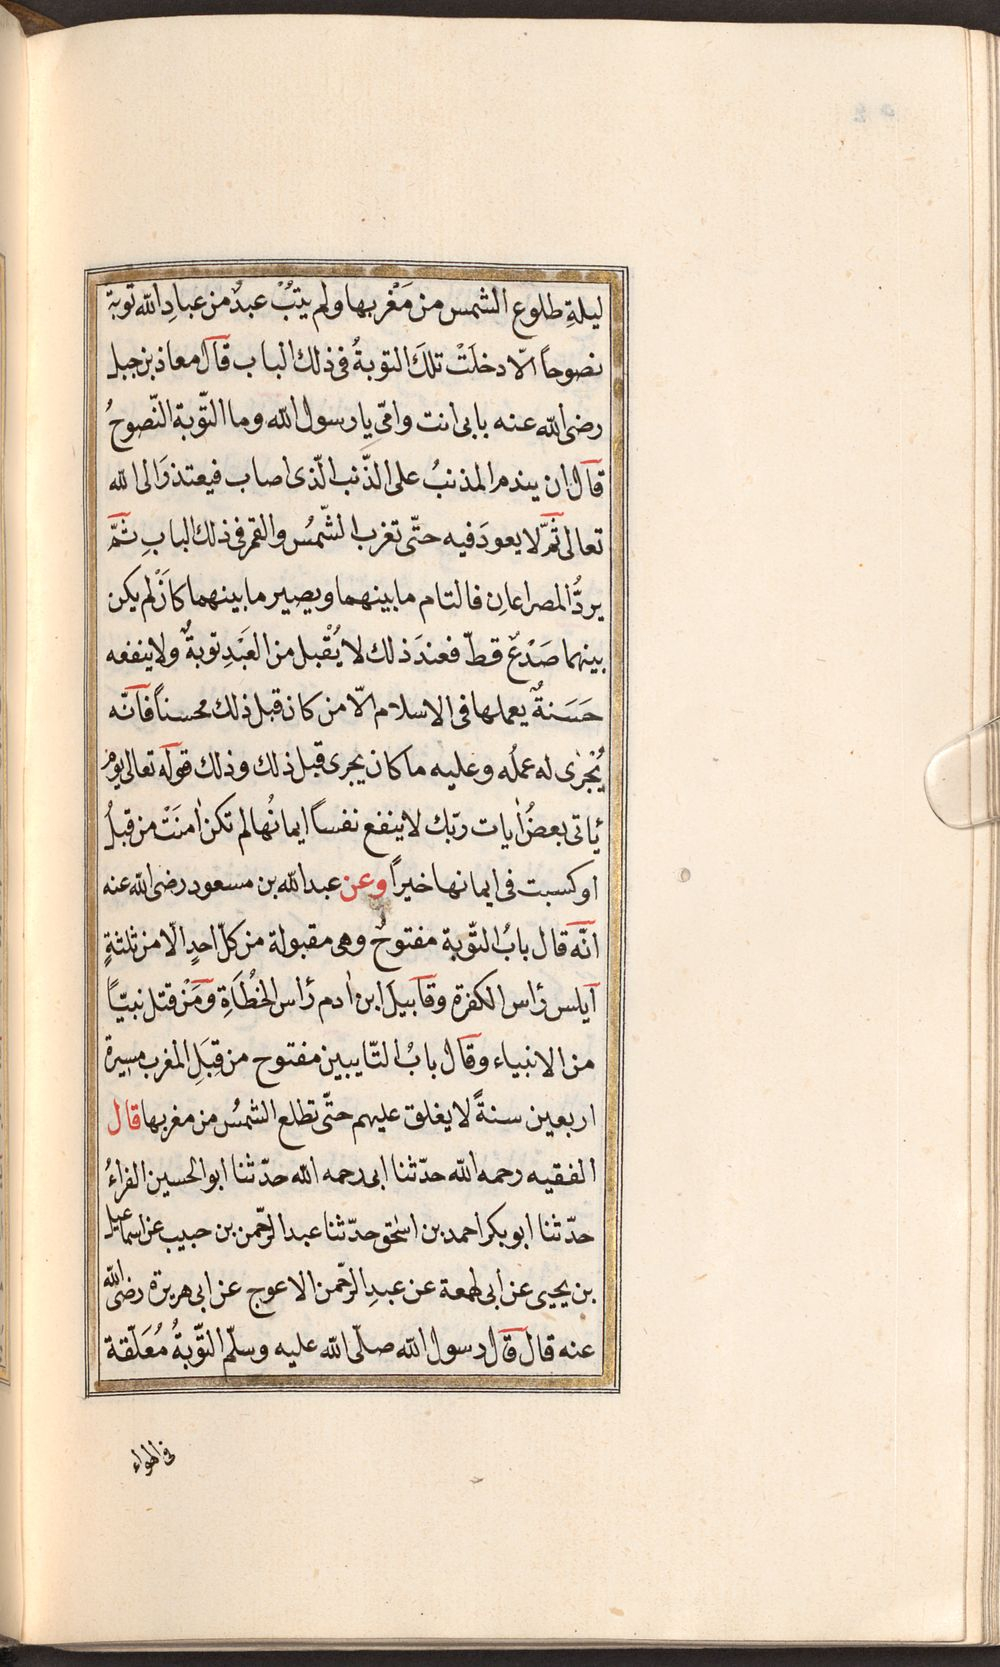 ليلةِ طلوع الشمس من مَغْربها ولم يتُبْ عبدٌ من عبادِ الله توبة
نصوحاً الّا دخلَتْ تلكَ التوبةُ فى ذلك الباب قال معاذ بن جبل
رضى الله عنه بابى انت وامّى يا رسول الله وما التّوبة النّصوحُ
قال ان يندم المذنبُ على الذّنب الّذى اصاب فيعتذرَ الى الله
تعالى ثمّ لا يعودَ فيه حتّى تغرب الشّمسُ والقمر فى ذلك البابِ ثمّ
يردُّ المصراعانِ فالتام ما بينهما ويصير ما بينهما كاَنْ لم يكن
بينهما صَدْعٌ قطّ فعندَ ذلك لا يُقْبل من العَبْدِ توبةٌ ولا ينفعه
حَسَنةٌ يعملها فى الاسلام الّا من كان قبل ذلك محسناً فانّه
يُجْرٰى له عملُه وعليه ما كان يجرى قبل ذلك وذلك قوله تعالى يوم
ئاتى بعضُ اٰيات ربّك لا ينفع نفساً ايمانُها لم تكن اٰمنَتْ من قبلُ
او كسبت فى ايمانها خيراً وعن عبد الله بن مسعود رضى الله عنه
انّه قال بابُ التّوبة مفتوحٌ وهى مقبولة من كلّ احدٍ الّا من ثلثةٍ
ابليس رٔاس الكفرة وقابيلَ ابن اٰدم رٔاس الخُطَاةِ ومَنْ قتل نبيّاً
من الانبياء وقال بابُ التّايبين مفتوح من قِبَلِ المغرب مسيرة
اربعين سنةً لا يغلق عليهم حتّى تطلع الشمسُ من مغربها قال
الفقيه رحمه الله حدّثنا ابى رحمه الله حدّثنا ابو الحسين الفراءُ
حدّثنا ابو بكر احمد بن اسٰحٰق حدّثنا عبد الرّحمن بن حبيب عن اسماعيل
بن يحيى عن ابى طمعة عن عبدِ الرّحمن الاعوج عن ابى هريرة رضى الله
عنه قال قال رسول الله صلّى الله عليه وسلّم التّوبةُ مُعَلّقة
فى الهواء